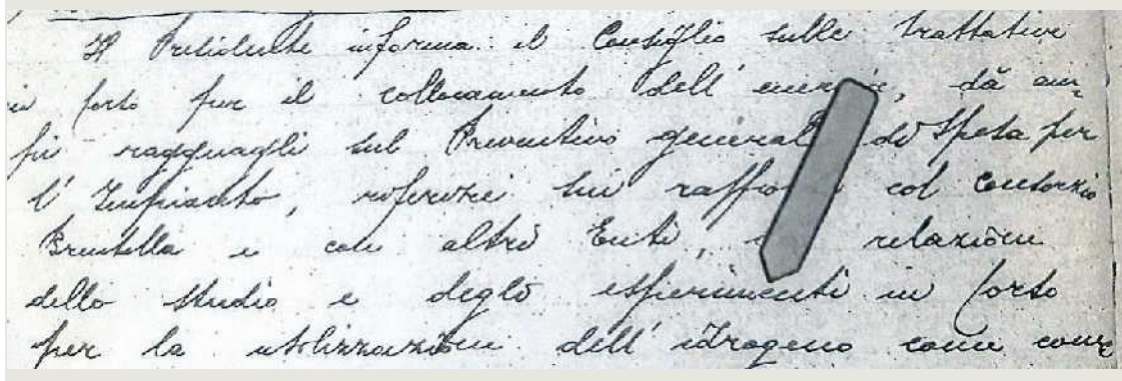 Il Presidente informa il Consiglio sulle trattative
in corso per il collocamento dell' energia, dà am
pi ragguagli sul Preventivo generale di Spesa per
l' Impianto, riferisce sui rapporti col Consorzio
Brentella e con altri Enti, relazione
dello studio e degli esperimenti in corso
per la utilizzazione dell' idrogeno come com